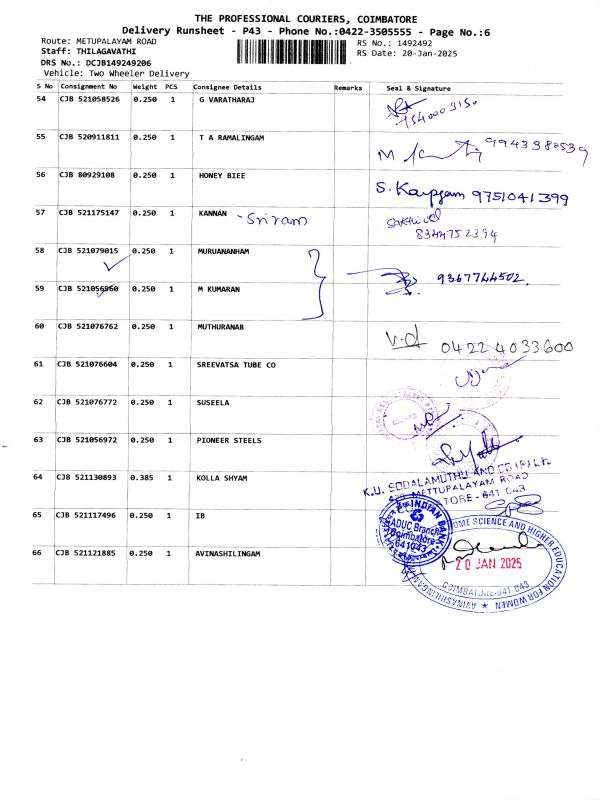 THE PROFESSIONAL COURIERS, COIMBATORE
Delivery Runsheet - P43 - Phone No.:0422-3505555 - Page No.:6
Route: METUPALAYAM ROAD
Staff: THILAGAVATHI
DRS No.: DCJB149249206
Vehicle: Two Wheeler Delivery
RS No.: 1492492
RS Date: 20-Jan-2025
S No Consignment No Weight PCS Consignee Details Remarks Seal & Signature
54 CJB 521058526 0.250 1 G VARATHARAJ
55 CJB 520911811 0.250 1 T A RAMALINGAM
56 CJB 80929108 0.250 1 HONEY BIEE S. Karpgam 9751041399
57 CJB 521175147 0.250 1 KANNAN - Sriram Sakthivel
8344752394
58 CJB 521079015 0.250 1 MURUANANHAM 9367744502.
59 CJB 521056960 0.250 1 M KUMARAN
60 CJB 521076762 0.250 1 MUTHURANAB 0422 4033600
61 CJB 521076604 0.250 1 SREEVATSA TUBE CO
62 CJB 521076772 0.250 1 SUSEELA
63 CJB 521056972 0.250 1 PIONEER STEELS
64 CJB 521130893 0.385 1 KOLLA SHYAM
K.U. SODALAMUTHU AND
METTUPALAYAM ROAD
TORE-641 043
65 CJB 521117496 0.250 1 IB
INDIAN BANK
ADUC Branch
Coimbatore
641043
66 CJB 521121885 0.250 1 AVINASHILINGAM
HOME SCIENCE AND HIGHER EDUCATION FOR WOMEN
20 JAN 2025
COIMBATORE-641 043
AVINASHILINGAM